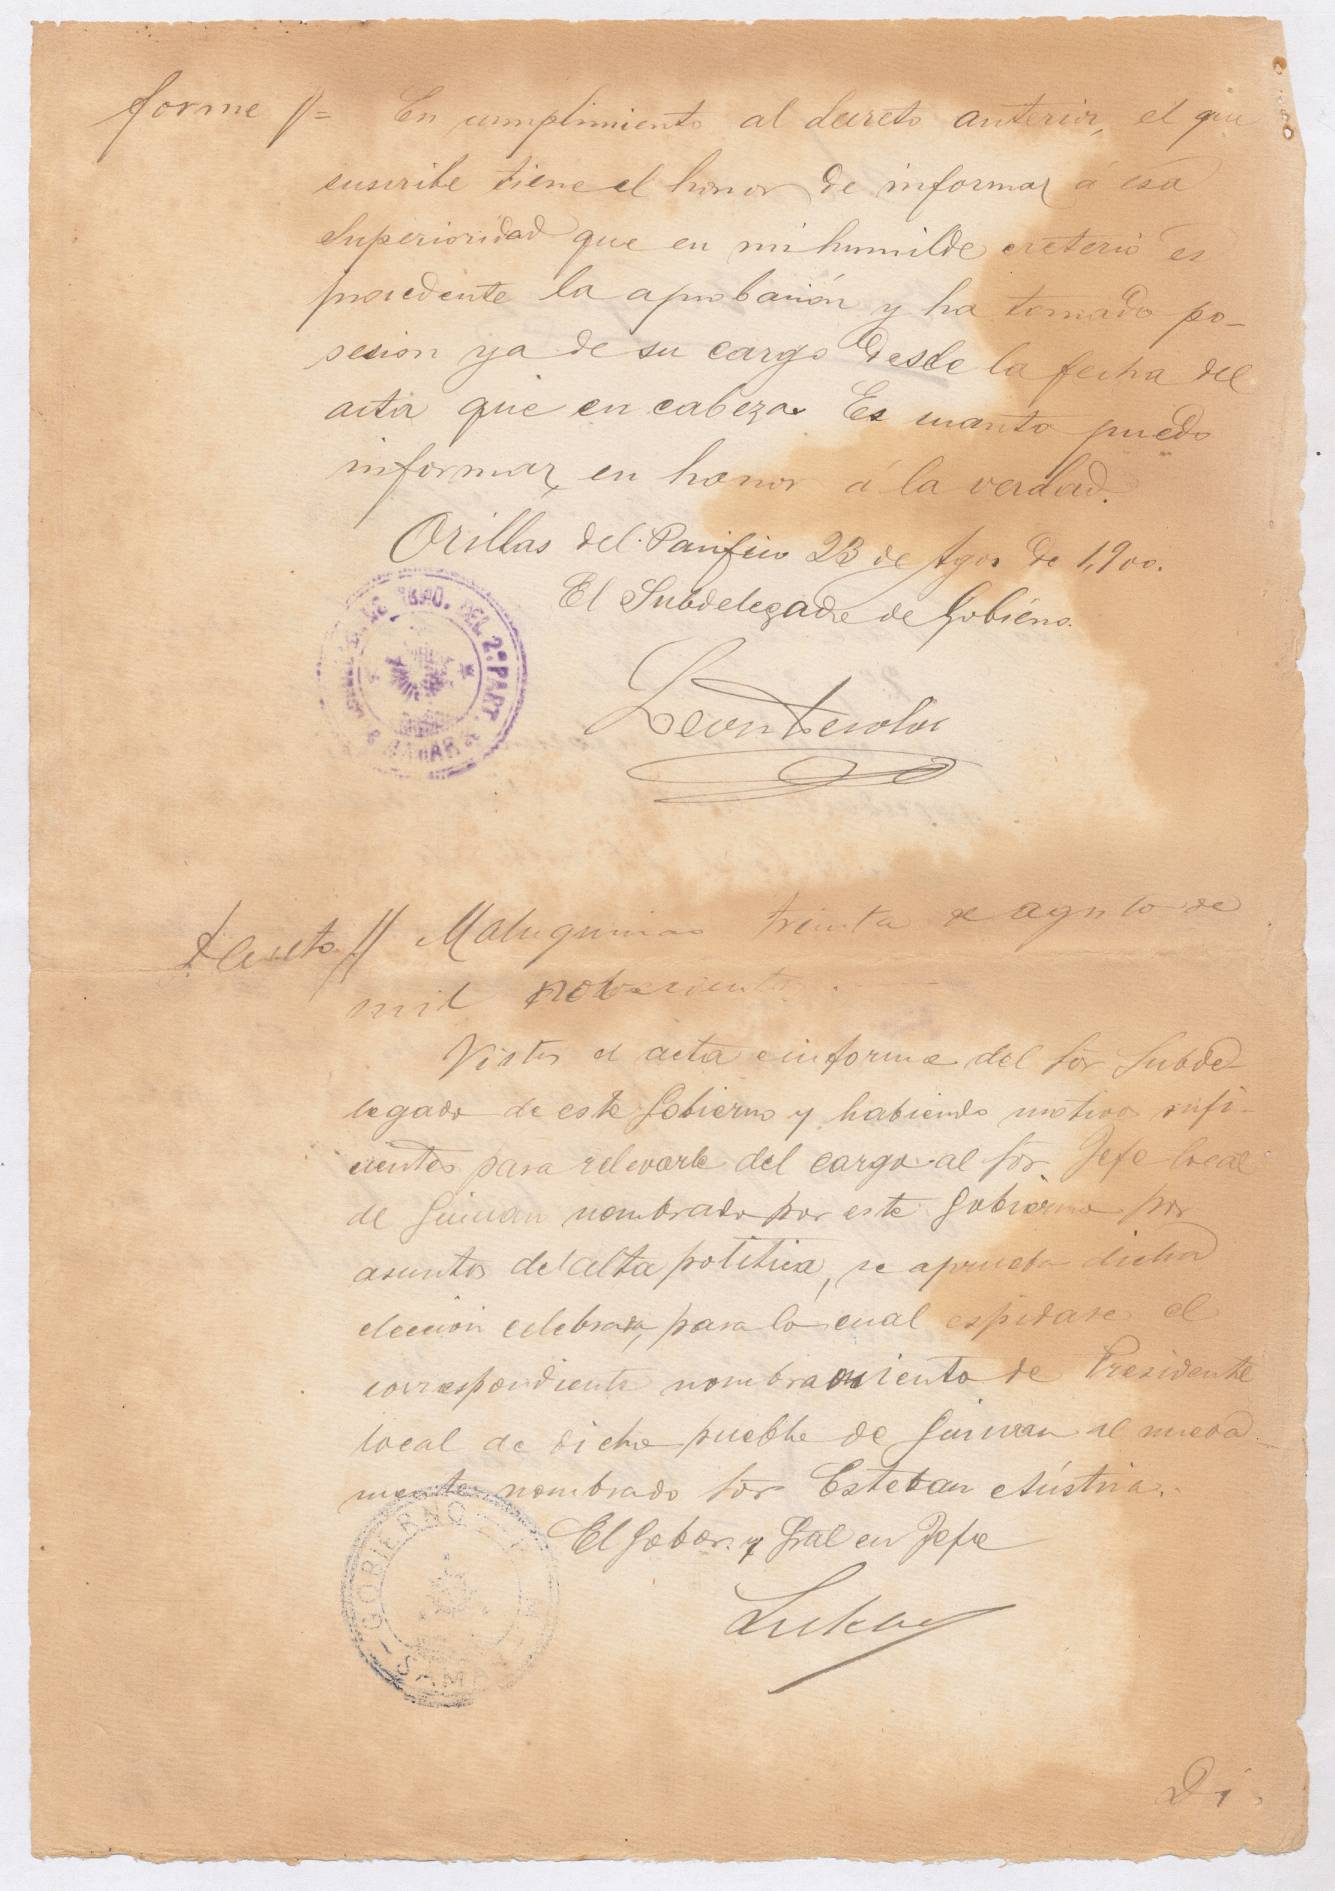 forme //= En cumplimiento al decreto anterior, el que
suscribe tiene el honor de informar á esa
Superioridad que en mi humilde creterio es
procedente la aprobación y ha tomado po-
sesion ya de su cargo desde la fecha del
acta que en cabeza. Es cuanto puedo
informar, en honor á la verdad.
Orillas del Pacifico 23 de Agos de 1,900.
El Subdelegado de Gobierno.
2.º PART.
Decreto // trienta de agosto de
mil nobecientos.
Vistos el acta e informe del Sor Subde-
legado de este Gobierno y habiendo motivos sufi-
cientes para relevarle del cargo al Sor Jefe local
de Guiuan nombrado por este Gobierno por
asuntos de alta politica, se aprueba dicha
eleccion celebrada, para lo cual espidase el
correspondiente nombramiento de Presidente
local de dicho pueblo de Guiuan al nueva-
mente nombrado Sor Esteban Aústria.
El Gobor. y Gral en Jefe
Lukban
GOBIERNO
SAMAR
Di